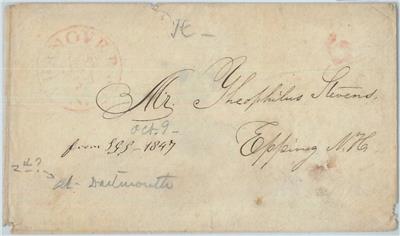 HANOVER
5
Mr. Theophilus Stevens.
Epping N.H.
Oct. 9 -
from SGS - 1847
at - Dartmouth